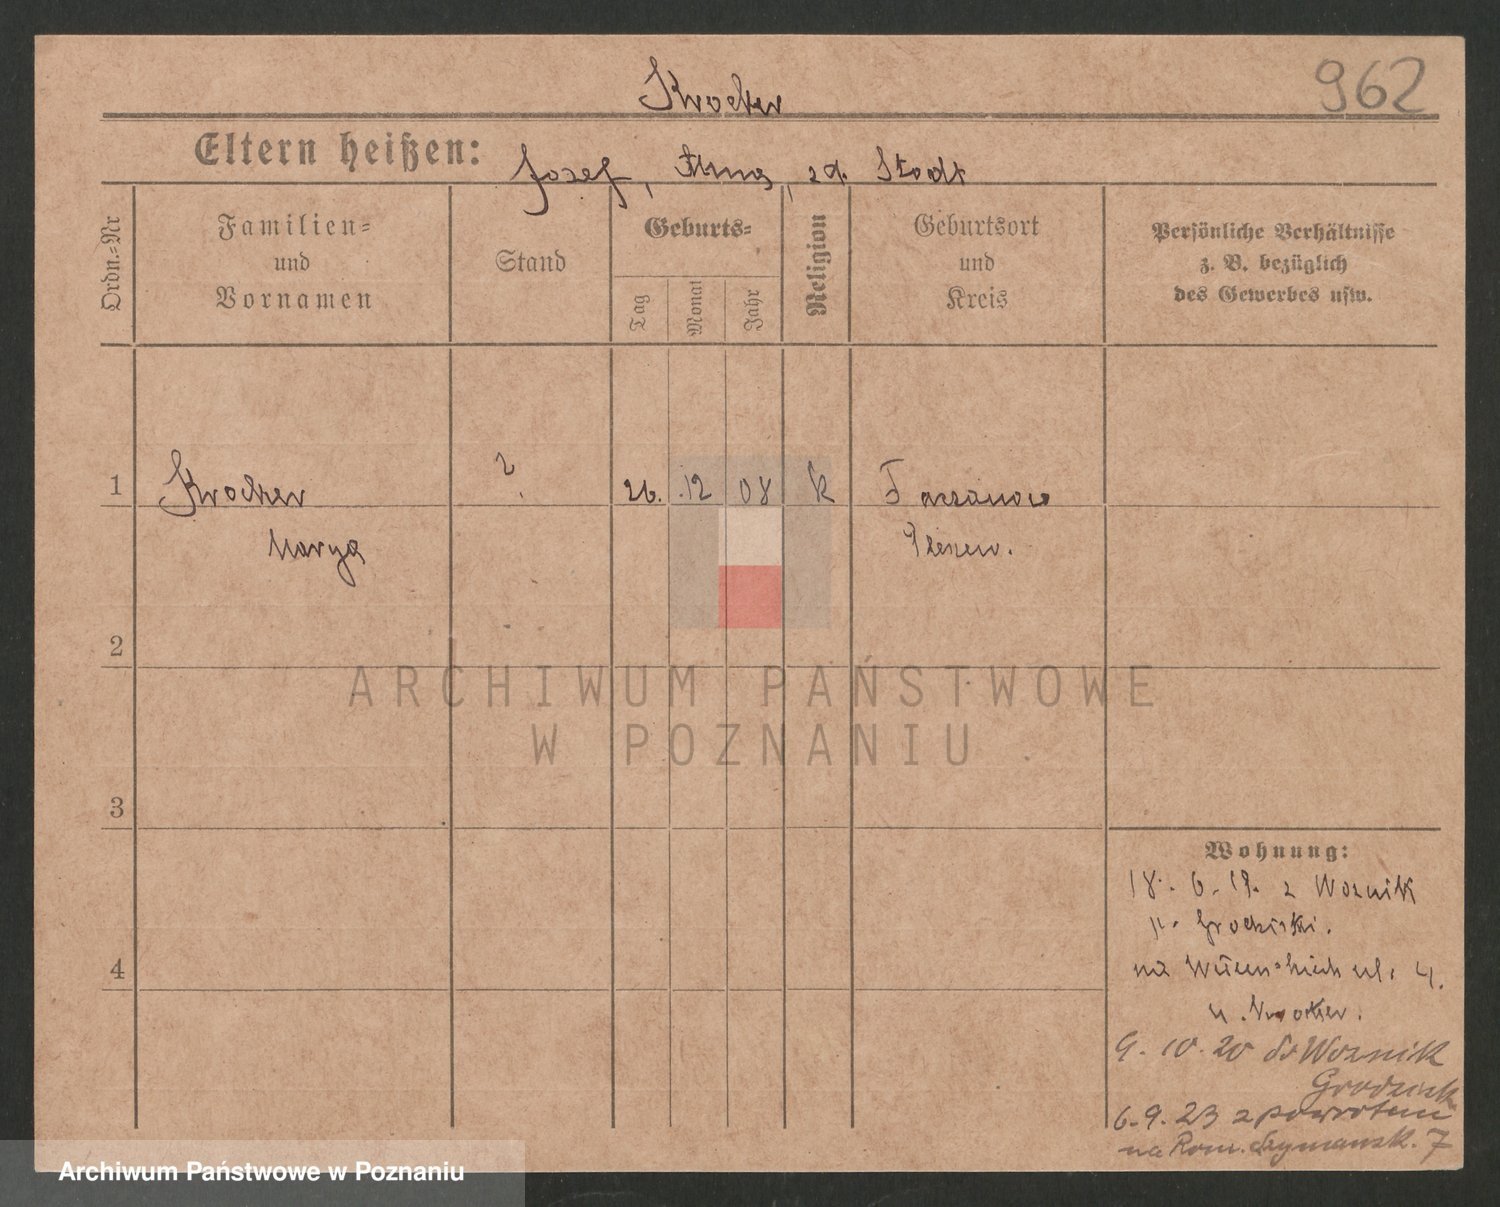 Krocker
962
Eltern heißen: Josef, Anna, zd. Stodt
Ordn.-Nr
Familien=
und
Vornamen
Stand
Geburts=
Tag
Monat
Jahr
Religion
Geburtsort
und
Kreis
Persönliche Verhältnisse
z. B. bezüglich
des Gewerbes usw.
1 Krocker ? 26. 12 08 k Taczanowo
Marya Pleszew.
2
ARCHIWUM PAŃSTWOWE
W POZNANIU
3
Wohnung:
18. 6. 19. z Woznik
p. Grodziski.
na ul. 4.
u. Krocker.
9. 10. 20 do Woznik
Grodzisk
6. 9. 23 z powrotem
na Rom. Szymansk. 7
4
Archiwum Państwowe w Poznaniu